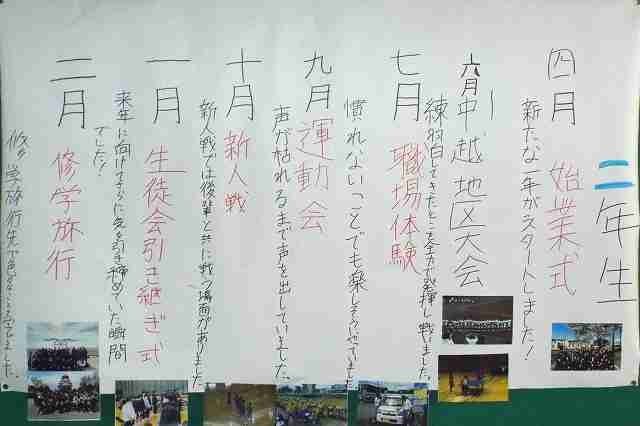 二年生
四月 始業式
新たな一年がスタートしました！
六月 中越地区大会
練習してきたことを全力で発揮し戦いました
七月 職場体験
慣れないことでも楽しそうにやっていました
九月 運動会
声が枯れるまで声を出していました。
十月 新人戦
新人戦では後輩と共に戦う場面がありました
一月 生徒会引き継ぎ式
来年に向けてさらに気を引き締めていた瞬間
でした！
二月 修学旅行
修学旅行先で